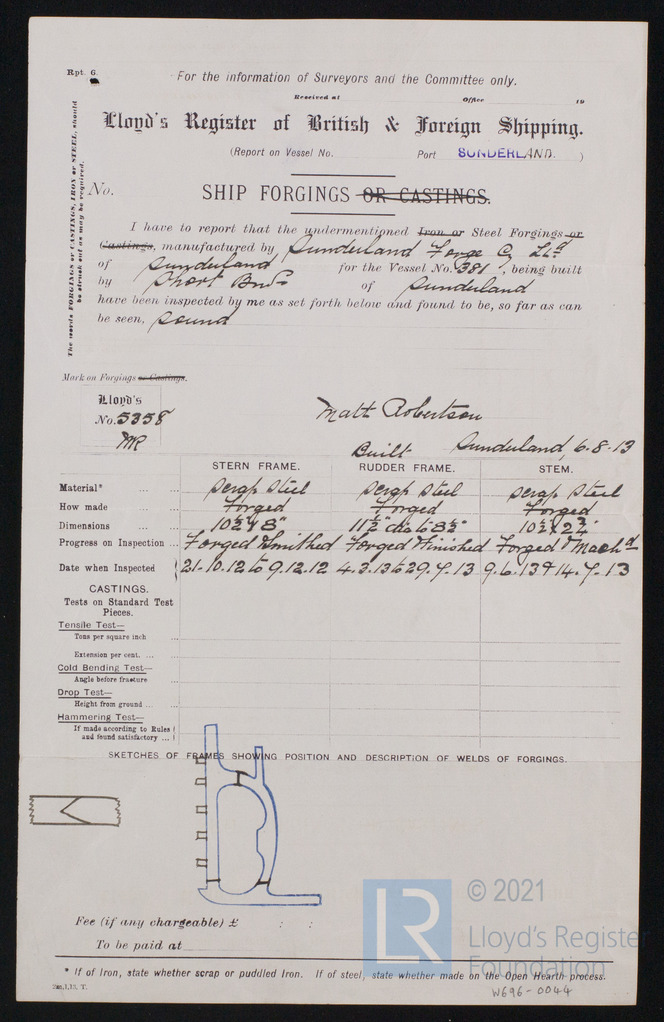 Rpt. 6.
For the information of Surveyors and the Committee only.
Received at Office 19
Lloyd's Register of British & Foreign Shipping.
(Report on Vessel No. Port SUNDERLAND. )
The words FORGINGS or CASTINGS, IRON or STEEL, should
be struck out as may be required.
No. SHIP FORGINGS OR CASTINGS.
I have to report that the undermentioned Iron or Steel Forgings or
Castings, manufactured by Sunderland Forge Co Ltd
of Sunderland for the Vessel No. 381, being built
by Short Bros of Sunderland
have been inspected by me as set forth below and found to be, so far as can
be seen, sound
Mark on Forgings or Castings.
Lloyd's
No. 5358
MR
Matt Robertson
Built Sunderland, 6.8.13
STERN FRAME. RUDDER FRAME. STEM.
Material* scrap steel scrap steel scrap steel
How made Forged Forged Forged
Dimensions
Progress on Inspection Forged & Smithed Forged & Finished Forged & Machd
Date when Inspected 21.10.12 to 9.12.12 4.3.13 to 29.7.13 9.6.13 & 14.7.13
CASTINGS.
Tests on Standard Test
Pieces.
Tensile Test—
Tons per square inch ...
Extension per cent. ... ...
Cold Bending Test—
Angle before fracture ...
Drop Test—
Height from ground ... ...
Hammering Test—
If made according to Rules
and found satisfactory ...
SKETCHES OF FRAMES SHOWING POSITION AND DESCRIPTION OF WELDS OF FORGINGS.
Fee (if any chargeable) £ : :
To be paid at
* If of Iron, state whether scrap or puddled Iron. If of steel, state whether made on the Open Hearth process.
LR © 2021
Lloyd's Register
Foundation
W696-0044